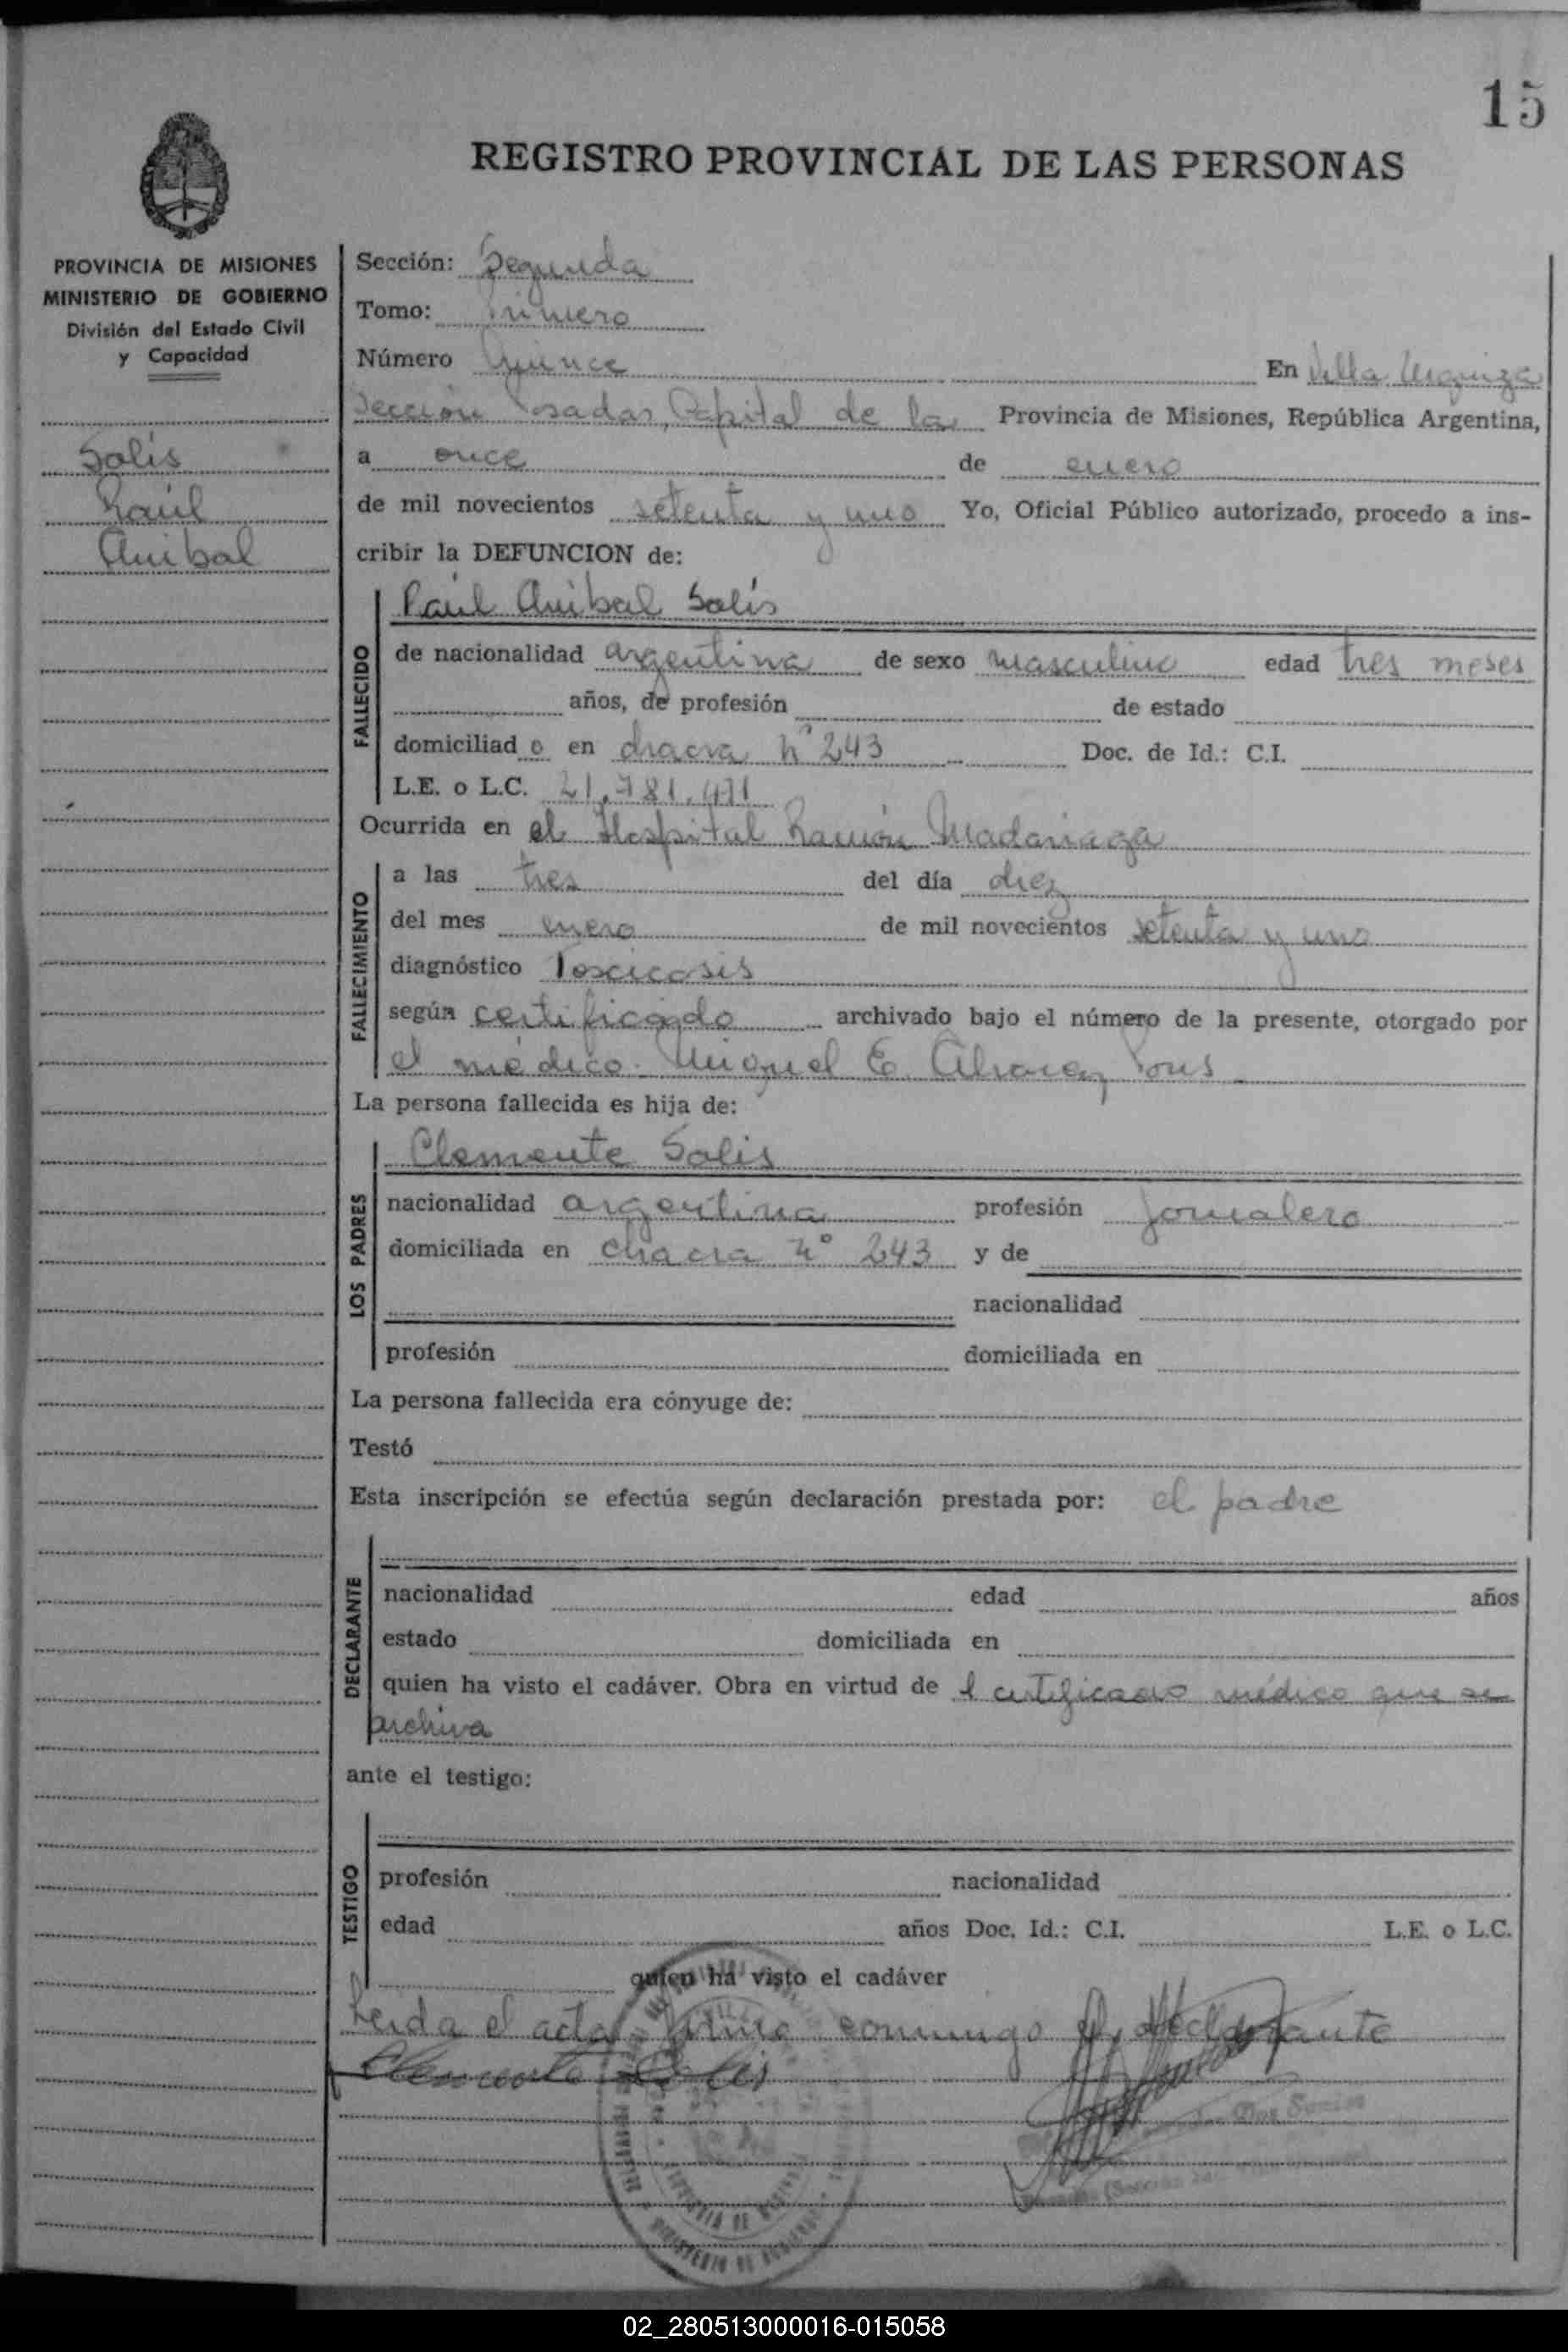 15
REGISTRO PROVINCIAL DE LAS PERSONAS
PROVINCIA DE MISIONES
MINISTERIO DE GOBIERNO
División del Estado Civil
y Capacidad
Solís
Raúl
Anibal
Sección: Segunda
Tomo: Primero
Número Quince En Villa Urquiza
Sección Posadas, Capital de la Provincia de Misiones, República Argentina,
a once de enero
de mil novecientos setenta y uno Yo, Oficial Público autorizado, procedo a ins-
cribir la DEFUNCION de:
FALLECIDO
Raúl Anibal Solís
de nacionalidad argentina de sexo masculino edad tres meses
años, de profesión de estado
domiciliad o en chacra nº 243 Doc. de Id.: C.I.
L.E. o L.C. 21.781.411
Ocurrida en el Hospital Ramón Madariaga
FALLECIMIENTO
a las tres del día diez
del mes enero de mil novecientos setenta y uno
diagnóstico Toxcicosis
según certificado archivado bajo el número de la presente, otorgado por
el médico Miguel E. Alvarez Pons
La persona fallecida es hija de:
LOS PADRES
Clemente Solis
nacionalidad argentina profesión jornalero
domiciliada en chacra nº 243 y de
nacionalidad
profesión domiciliada en
La persona fallecida era cónyuge de:
Testó
Esta inscripción se efectúa según declaración prestada por: el padre
DECLARANTE
nacionalidad edad años
estado domiciliada en
quien ha visto el cadáver. Obra en virtud de l certificado médico que se
archiva
ante el testigo:
TESTIGO
profesión nacionalidad
edad años Doc. Id.: C.I. L.E. o L.C.
quien ha visto el cadáver
Leida el acta firma conmigo el declarante
Clemente Solis
02_280513000016-015058